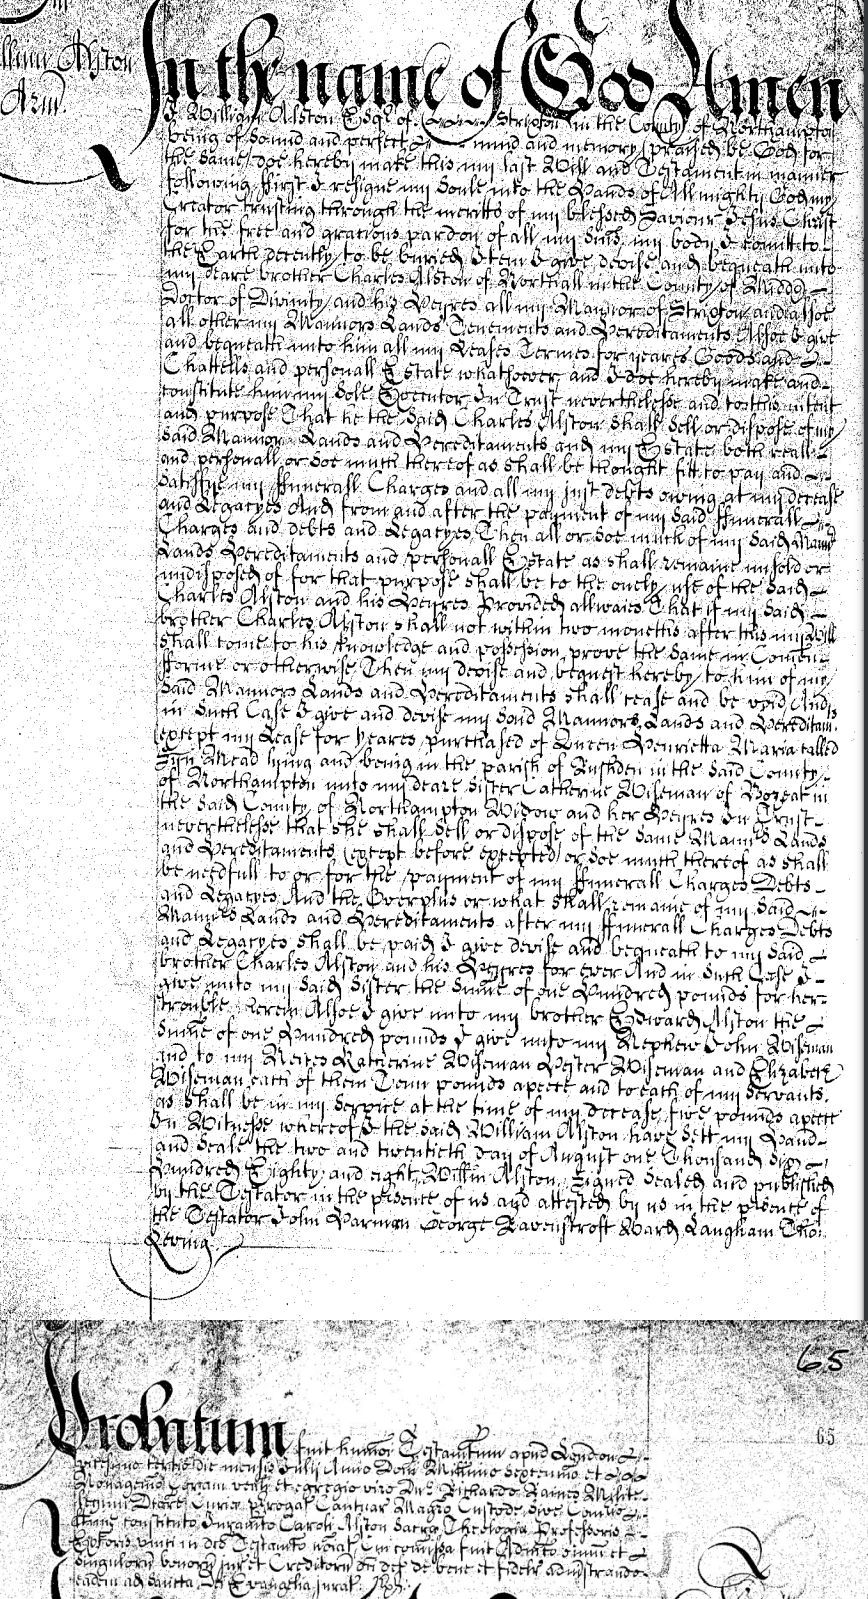 Willm Alston
Arm.
In the name of God Amen
I William Alston Esqr. of Strixton in the County of Northampton
being of sound and perfect mind and memory (praised be God for
the same) doe hereby make this my last Will and Testament in manner
following ffirst I resigne my Soule into the Hands of Allmighty God my
Creator trusting through the meritts of my blessed Saviour Jesus Christ
for the free and gracious pardon of all my Sins, my body I comitt to
the Earth decently to be buried Item I give, devise and bequeath unto
my deare brother Charles Alston of Northall in the County of Middx
Doctor of Divinity and his Heyres all my Mannor of Strixton and alsoe
all other my Mannors Lands Tenements and Hereditaments Alsoe I give
and bequeath unto him all my Leases Termes for yeares Goods and
Chattells and personall Estate whatsoever and I doe hereby make and
constitute him my Sole Executor In Trust neverthelesse and to this intent
and purpose That he the said Charles Alston shall sell or dispose of my
said Mannor Lands and Hereditaments and my Estate both reall
and personall or soe much thereof as shall be thought fitt to pay and
Satisfye my ffunerall Charges and all my just debts oweing at my decease
and Legacyes And from and after the payment of my said ffunerall
Charges and debts and Legacyes Then all or soe much of my said
Lands Hereditaments and personall Estate as shall remaine unsold or
undisposed of for that purpose shall be to the onely use of the said
Charles Alston and his Heyres Provided allwaies That if my said
brother Charles Alston shall not within two moneths after this my Will
shall come to his knowledge and possession prove the same in Comon
fforme or otherwise Then my devise and bequest hereby to him of my
said Mannors Lands and Hereditaments shall cease and be void And
in such Case I give and devise my said Mannors, Lands and Hereditamts.
except my Lease for yeares purchased of Queen Henrietta Maria called
Mead lying and being in the parish of Rushden in the said County
of Northampton unto my deare Sister Catherine Wiseman of Bozeat in
the said County of Northampton Widow and her Heyres In Trust
neverthelesse that she shall sell or dispose of the same Mannors Lands
and Hereditaments (except before excepted) or soe much thereof as shall
be needfull to or for the payment of my ffunerall Charges Debts
and Legacyes And the Overplus or what shall remaine of my said
Mannors Lands and Hereditaments after my ffunerall Charges Debts
and Legacyes shall be paid I give devise and bequeath to my said
brother Charles Alston and his Heyres for ever And in such Case I
give unto my said Sister the Summe of one Hundred pounds for her
trouble herein Alsoe I give unto my brother Edward Alston the
Summe of one Hundred pounds I give unto my Nephew John Wiseman
and to my Neices Katherine Wiseman Hester Wiseman and Elizabeth
Wiseman each of them Tenn pounds apeece and to each of my Servants
as shall be in my Service at the time of my decease five pounds apeece
In Witnesse whereof I the said William Alston have sett my Hand
and Seale the two and twentieth day of August one Thousand Six
Hundred Eighty and eight Willm Alston. Signed Sealed and published
by the Testator in the presence of us and attested by us in the presence of
the Testator John Harman George Ravenscroft Ward Langham Tho:
65
65
Probatum fuit humoi Testamentum apud London
vicesimo tertio die mensis Julii Anno Dom Millimo Septenmo et
Nonagemo Coram venli et egregio viro Dno Richardo Raines Milite
Legum Dcore Curiae Prerogat Cantuar Magro Custode sive Comrio
ltime constituto Juramto Caroli Alston Sacrae Theologiae Professoris
Extoris unici in dco Testamto noiat Cui comissa fuit Admco omniu et
Singuloru bonoru juriu et Creditoru dci def de bene et fideliter admistrando
eadem ad sancta Dei Evangelia jurat.